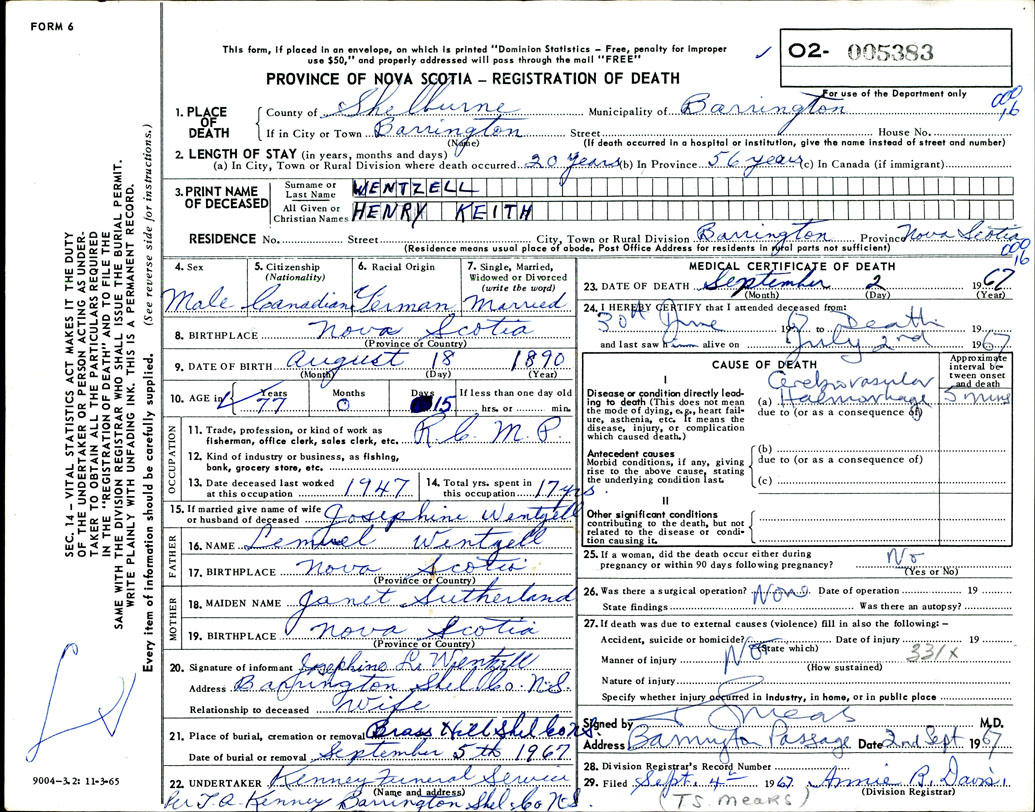 FORM 6
This form, if placed in an envelope, on which is printed "Dominion Statistics – Free, penalty for improper
use $50," and properly addressed will pass through the mail "FREE"
✓ 02- 005383
PROVINCE OF NOVA SCOTIA – REGISTRATION OF DEATH
For use of the Department only
1. PLACE OF DEATH
County of Shelburne Municipality of Barrington
If in City or Town Barrington Street House No.
(Name) (If death occurred in a hospital or institution, give the name instead of street and number)
2. LENGTH OF STAY (in years, months and days)
(a) In City, Town or Rural Division where death occurred 20 years (b) In Province 56 years (c) In Canada (if immigrant)
3. PRINT NAME OF DECEASED
Surname or Last Name WENTZELL
All Given or Christian Names HENRY KEITH
RESIDENCE No. Street City, Town or Rural Division Barrington Province Nova Scotia
(Residence means usual place of abode. Post Office Address for residents in rural parts not sufficient)
4. Sex Male
5. Citizenship (Nationality) Canadian
6. Racial Origin German
7. Single, Married, Widowed or Divorced (write the word) Married
8. BIRTHPLACE Nova Scotia
(Province or Country)
9. DATE OF BIRTH August 18 1890
(Month) (Day) (Year)
10. AGE in Years 77 Months 0 Days 15 If less than one day old
hrs. or min.
OCCUPATION
11. Trade, profession, or kind of work as
fisherman, office clerk, sales clerk, etc. R.C.M.P.
12. Kind of industry or business, as fishing,
bank, grocery store, etc.
13. Date deceased last worked at this occupation 1947
14. Total yrs. spent in this occupation 17 yrs.
15. If married give name of wife
or husband of deceased Josephine Wentzell
FATHER
16. NAME Lemuel Wentzell
17. BIRTHPLACE Nova Scotia
(Province or Country)
MOTHER
18. MAIDEN NAME Janet Sutherland
19. BIRTHPLACE Nova Scotia
(Province or Country)
20. Signature of informant Josephine L. Wentzell
Address Barrington Shel Co. N.S.
Relationship to deceased Wife
21. Place of burial, cremation or removal Brass Hill Shel Co N.S.
Date of burial or removal September 5th 1967
22. UNDERTAKER Kenney Funeral Service
(Name and address)
Per T.A. Kenney Barrington Shel. Co N.S.
MEDICAL CERTIFICATE OF DEATH
23. DATE OF DEATH September 2 1967
(Month) (Day) (Year)
24. I HEREBY CERTIFY that I attended deceased from:
30th June 19 to Death 19
and last saw him alive on July 2nd 1967
CAUSE OF DEATH
Approximate interval between onset and death
I
Disease or condition directly leading to death (This does not mean
the mode of dying, e.g., heart failure, asthenia, etc. It means the
disease, injury, or complication
which caused death.)
(a) Cerebrovascular Haemorrhage 5 mins
due to (or as a consequence of)
Antecedent causes
Morbid conditions, if any, giving
rise to the above cause, stating
the underlying condition last.
(b)
due to (or as a consequence of)
(c)
II
Other significant conditions
contributing to the death, but not
related to the disease or condition causing it.
25. If a woman, did the death occur either during
pregnancy or within 90 days following pregnancy? No
(Yes or No)
26. Was there a surgical operation? None Date of operation 19
State findings Was there an autopsy?
27. If death was due to external causes (violence) fill in also the following: –
Accident, suicide or homicide? (State which) Date of injury 19
No 331X
Manner of injury
(How sustained)
Nature of injury
Specify whether injury occurred in industry, in home, or in public place
Signed by M.D.
Address Barrington Passage Date 2nd Sept 1967
28. Division Registrar's Record Number
29. Filed Sept. 4th 1967 Annie R. Davis
(Division Registrar)
(T.S. Mears)
SEC. 14 – VITAL STATISTICS ACT MAKES IT THE DUTY
OF THE UNDERTAKER OR PERSON ACTING AS UNDERTAKER TO OBTAIN ALL THE PARTICULARS REQUIRED
IN THE "REGISTRATION OF DEATH" AND TO FILE THE
SAME WITH THE DIVISION REGISTRAR WHO SHALL ISSUE THE BURIAL PERMIT.
WRITE PLAINLY WITH UNFADING INK. THIS IS A PERMANENT RECORD.
Every item of information should be carefully supplied. (See reverse side for instructions.)
9004–3.2: 11-3-65